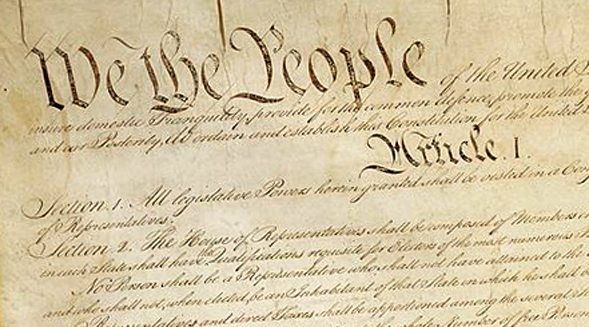 We the People of the United
insure domestic Tranquility, provide for the common defence, promote the
and our Posterity, do ordain and establish this Constitution for the United
Article. I.
Section. 1. All legislative Powers herein granted shall be vested in a
of Representatives.
Section. 2. The House of Representatives shall be composed of Members
in each State shall have the Qualifications requisite for Electors of the most numerous
No Person shall be a Representative who shall not have attained to the
and who shall not, when elected, be an Inhabitant of that State in which he shall
Representatives and direct Taxes shall be apportioned among the several
Number of free